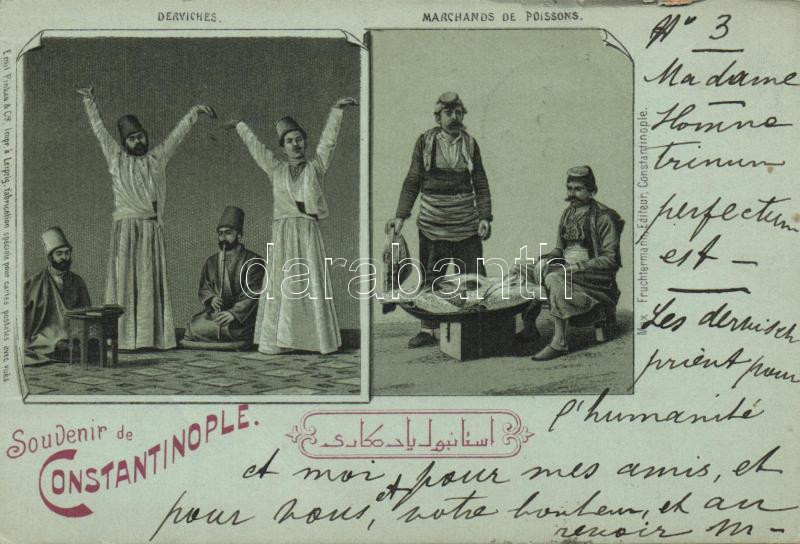 DERVICHES.
MARCHANDS DE POISSONS.
Emil Pinkau & Co. Impr. à Leipzig, fabrication spéciale pour cartes postales avec vues
Max Fruchtermann, Editeur, Constantinople.
darabanth
Souvenir de
CONSTANTINOPLE.
استانبول يادكارى
No 3
Madame
Homne
trinum
perfectum
est —
Les dervisch
prient pour
l'humanité
et moi, pour mes amis, et
pour vous, et votre bonheur, et au
revoir M—